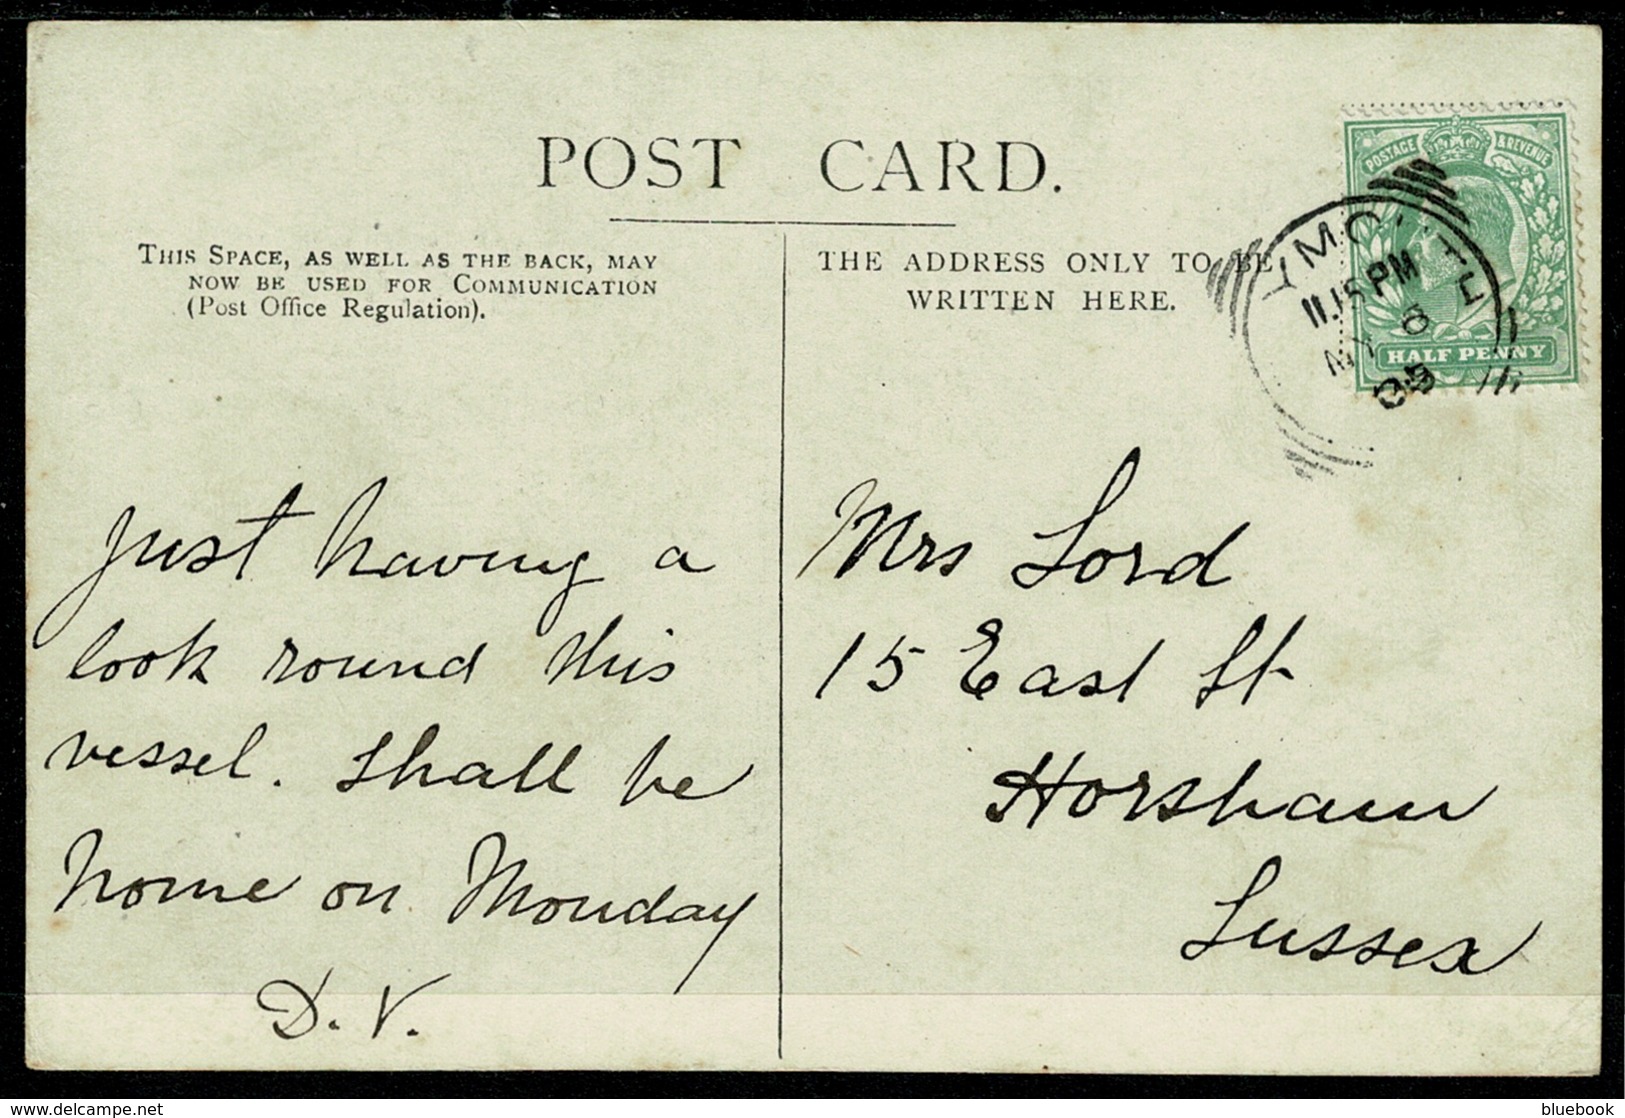 POST CARD.
THIS SPACE, AS WELL AS THE BACK, MAY
NOW BE USED FOR COMMUNICATION
(Post Office Regulation).
THE ADDRESS ONLY TO BE
WRITTEN HERE.
POSTAGE & REVENUE
HALF PENNY
YMOUTH
11.15PM
MY 6
05
Just having a
look round this
vessel. Shall be
home on Monday
D.V.
Mrs Lord
15 East St
Horsham
Sussex
delcampe.net
bluebook